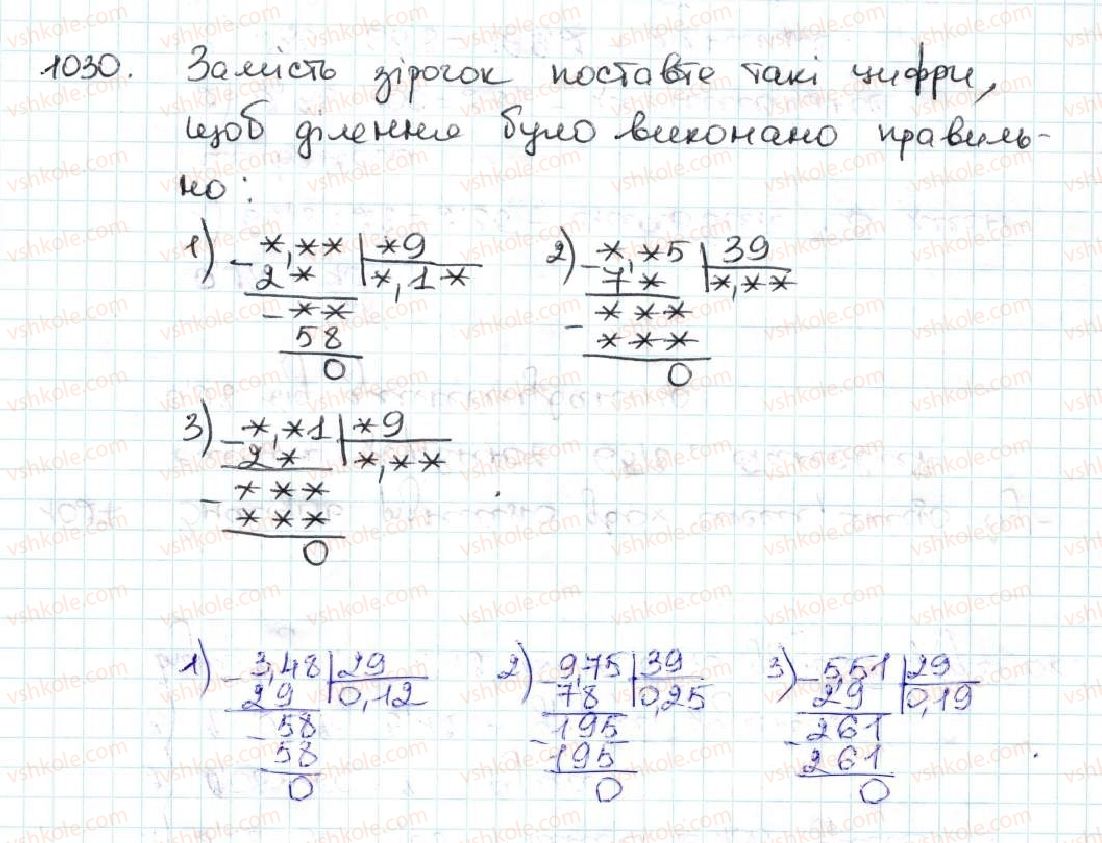 1030. Замість зірочок поставте такі цифри,
щоб ділення було виконано правиль-
но:
1) - *,** | *9
2* | *,1*
- **
58
0
2) - *,*5 | 39
7* | *,**
- ***
***
0
3) - *,*1 | *9
2* | *,**
- ***
***
0
1) - 3,48 | 29
29 | 0,12
- 58
58
0
2) - 9,75 | 39
78 | 0,25
- 195
195
0
3) - 5,51 | 29
2,9 | 0,19
- 261
261
0
vshkole.com